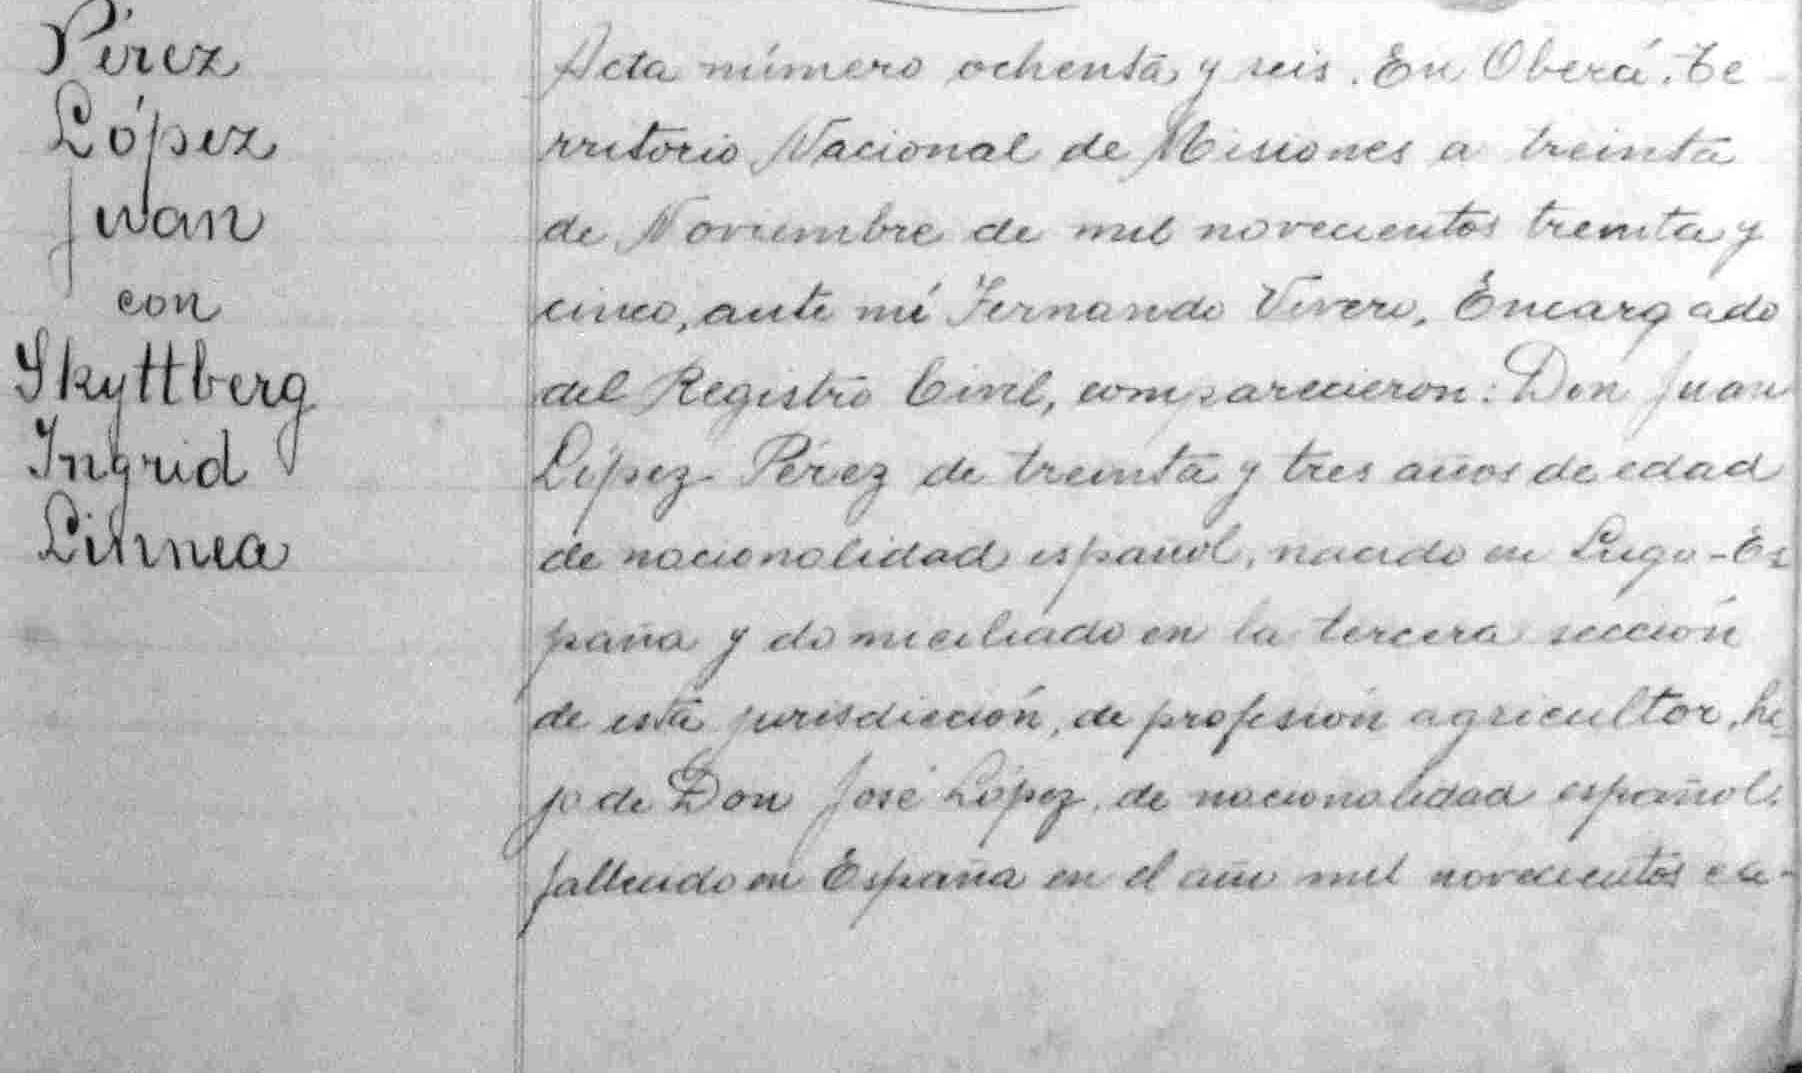 Pérez
López
Juan
con
Skyttberg
Ingrid
Linnea
Acta número ochenta y seis. En Oberá. Te-
rritorio Nacional de Misiones a treinta
de Noviembre de mil novecientos treinta y
cinco, ante mí Fernando Vivero, Encargado
del Registro Civil, comparecieron: Don Juan
López Pérez de treinta y tres años de edad
de nacionalidad español, nacido en Lugo-Es
paña y domiciliado en la tercera sección
de esta jurisdicción, de profesión agricultor, hi
jo de Don José López, de nacionalidad español.
fallecido en España en el año mil novecientos ca-